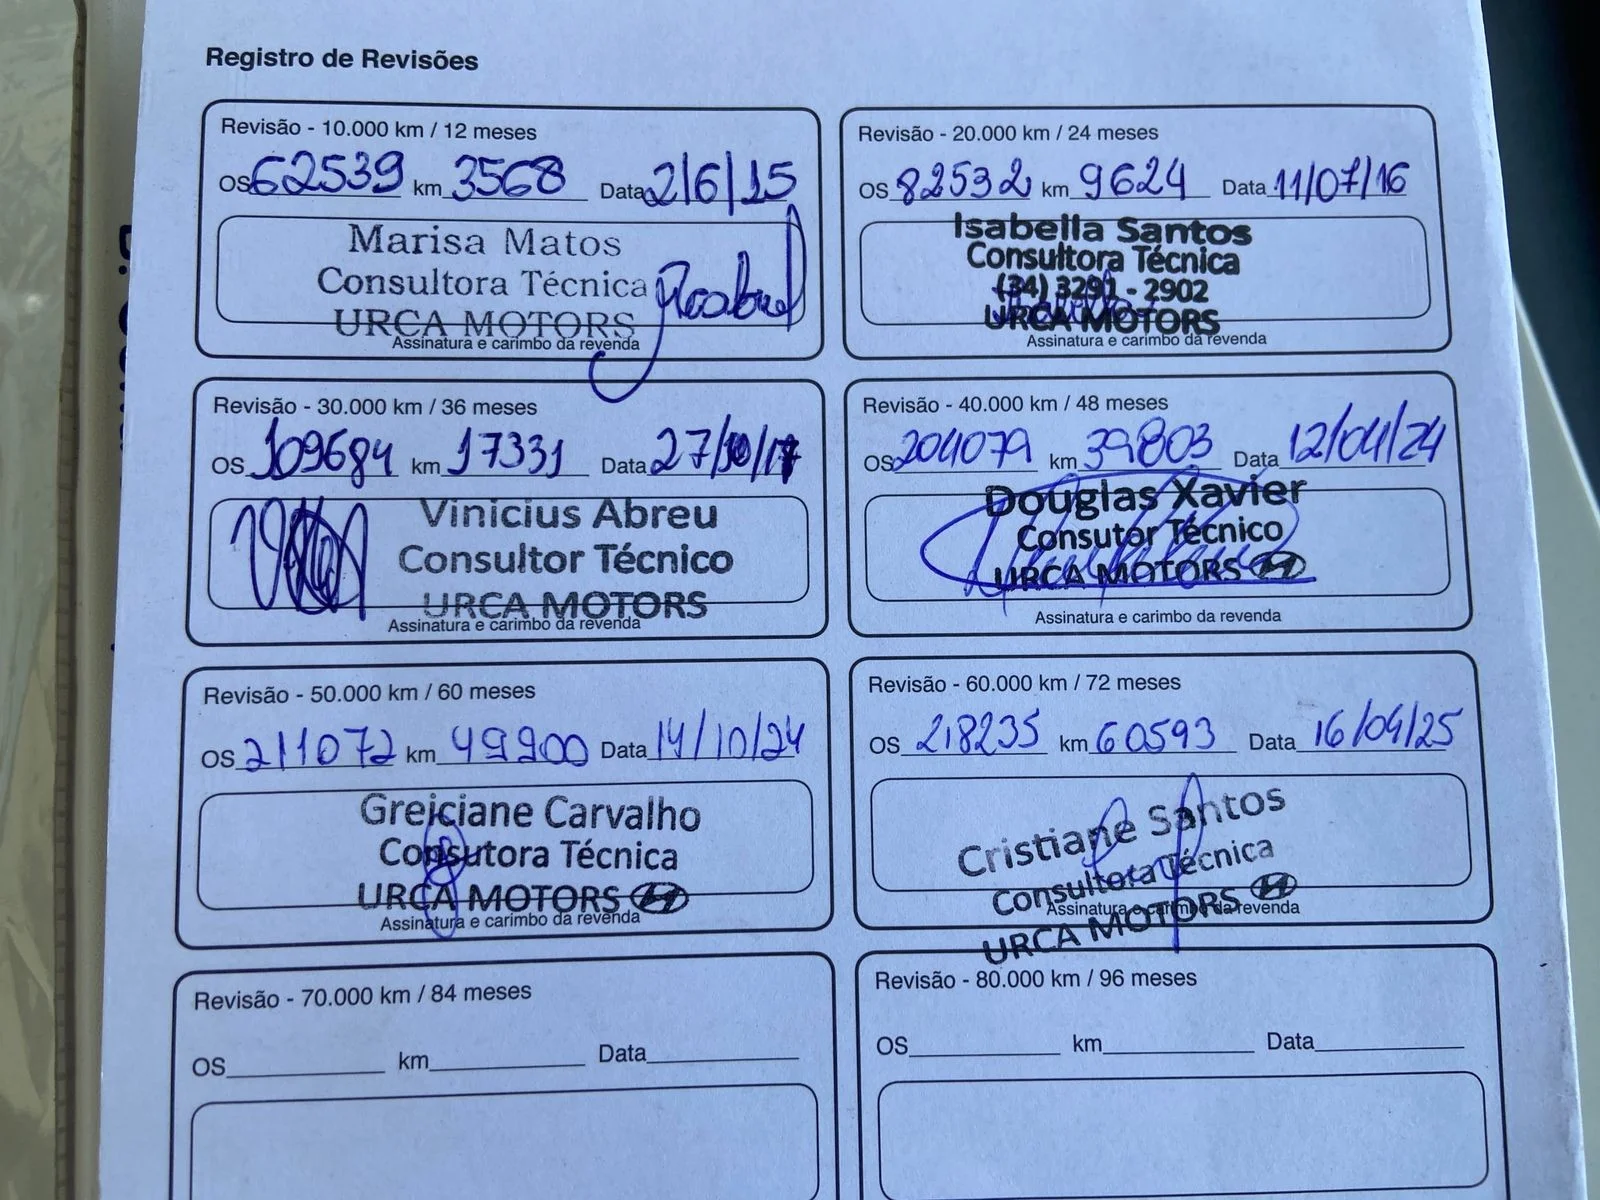 Registro de Revisões
Revisão - 10.000 km / 12 meses
OS 62539 km 3568 Data 2/6/15
Marisa Matos
Consultora Técnica
URCA MOTORS
Assinatura e carimbo da revenda
Revisão - 20.000 km / 24 meses
OS 82532 km 9624 Data 11/07/16
Isabella Santos
Consultora Técnica
(34) 3291 - 2902
URCA MOTORS
Assinatura e carimbo da revenda
Revisão - 30.000 km / 36 meses
OS 109684 km 17331 Data 27/10/17
Vinicius Abreu
Consultor Técnico
URCA MOTORS
Assinatura e carimbo da revenda
Revisão - 40.000 km / 48 meses
OS 204079 km 39803 Data 12/04/24
Douglas Xavier
Consutor Técnico
URCA MOTORS
Assinatura e carimbo da revenda
Revisão - 50.000 km / 60 meses
OS 211072 km 49900 Data 14/10/24
Greiciane Carvalho
Consutora Técnica
URCA MOTORS
Assinatura e carimbo da revenda
Revisão - 60.000 km / 72 meses
OS 218235 km 60593 Data 16/04/25
Cristiane Santos
Consultora Técnica
URCA MOTORS
Assinatura e carimbo da revenda
Revisão - 70.000 km / 84 meses
OS km Data
Revisão - 80.000 km / 96 meses
OS km Data